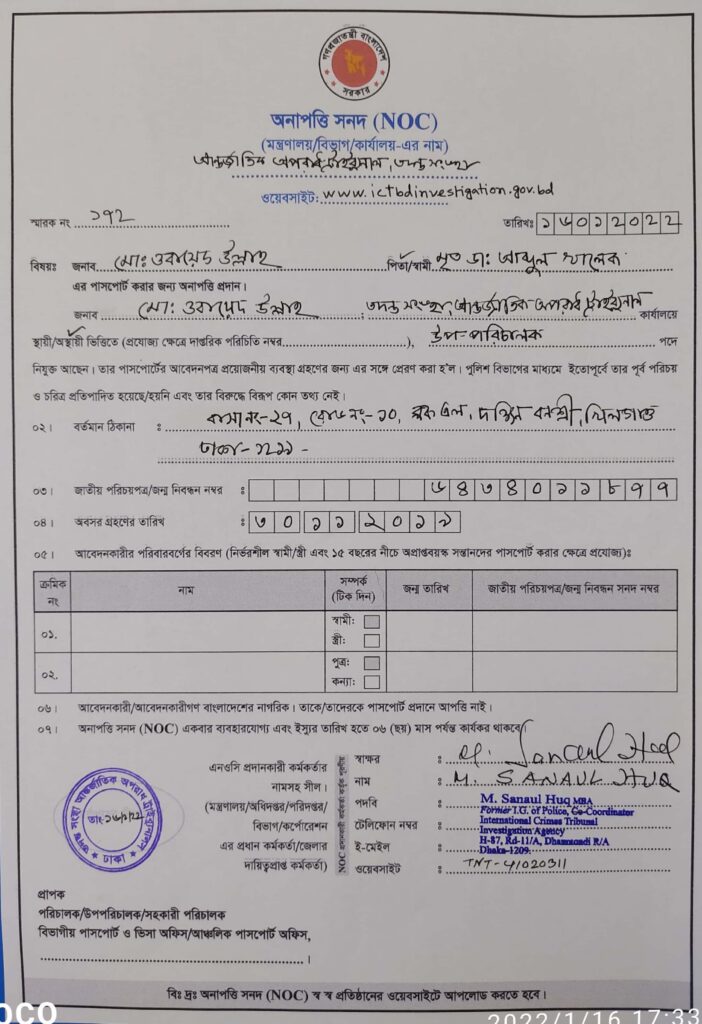 গণপ্রজাতন্ত্রী বাংলাদেশ
সরকার
অনাপত্তি সনদ (NOC)
(মন্ত্রণালয়/বিভাগ/কার্যালয়-এর নাম)
আন্তর্জাতিক অপরাধ ট্রাইব্যুনাল, তদন্ত সংস্থা
ওয়েবসাইট: www.ictbdinvestigation.gov.bd
স্মারক নং ১৭২ তারিখঃ ১৬০১২০২২
বিষয়ঃ জনাব মোঃ ওবায়েদ উল্লাহ পিতা/স্বামী মৃত ডাঃ আব্দুল খালেক
এর পাসপোর্ট করার জন্য অনাপত্তি প্রদান।
জনাব মোঃ ওবায়েদ উল্লাহ, তদন্ত সংস্থা, আন্তর্জাতিক অপরাধ ট্রাইব্যুনাল কার্যালয়ে
স্থায়ী/অস্থায়ী ভিত্তিতে (প্রযোজ্য ক্ষেত্রে দাপ্তরিক পরিচিতি নম্বর), উপ-পরিচালক পদে
নিযুক্ত আছেন। তার পাসপোর্টের আবেদনপত্র প্রয়োজনীয় ব্যবস্থা গ্রহণের জন্য এর সঙ্গে প্রেরণ করা হ'ল। পুলিশ বিভাগের মাধ্যমে ইতোপূর্বে তার পূর্ব পরিচয়
ও চরিত্র প্রতিপাদিত হয়েছে/হয়নি এবং তার বিরুদ্ধে বিরূপ কোন তথ্য নেই।
০২। বর্তমান ঠিকানা : বাসা নং-২৭, রোড নং-১০, ব্লক এল, দক্ষিণ বনশ্রী, খিলগাঁও
ঢাকা-১২১৯ -
০৩। জাতীয় পরিচয়পত্র/জন্ম নিবন্ধন নম্বর ঃ ৬৪৭৪০১১৮৭৭
০৪। অবসর গ্রহণের তারিখ ঃ ৩০১১২০১৯
০৫। আবেদনকারীর পরিবারবর্গের বিবরণ (নির্ভরশীল স্বামী/স্ত্রী এবং ১৫ বছরের নীচে অপ্রাপ্তবয়স্ক সন্তানদের পাসপোর্ট করার ক্ষেত্রে প্রযোজ্য)ঃ
ক্রমিক নং নাম সম্পর্ক (টিক দিন) জন্ম তারিখ জাতীয় পরিচয়পত্র/জন্ম নিবন্ধন সনদ নম্বর
০১. স্বামী:
স্ত্রী:
০২. পুত্র:
কন্যা:
০৬। আবেদনকারী/আবেদনকারীগণ বাংলাদেশের নাগরিক। তাকে/তাদেরকে পাসপোর্ট প্রদানে আপত্তি নাই।
০৭। অনাপত্তি সনদ (NOC) একবার ব্যবহারযোগ্য এবং ইস্যুর তারিখ হতে ০৬ (ছয়) মাস পর্যন্ত কার্যকর থাকবে।
এনওসি প্রদানকারী কর্মকর্তার
নামসহ সীল।
(মন্ত্রণালয়/অধিদপ্তর/পরিদপ্তর/
বিভাগ/কর্পোরেশন
এর প্রধান কর্মকর্তা/জেলার
দায়িত্বপ্রাপ্ত কর্মকর্তা)
NOC প্রদানকারী কর্মকর্তা কর্তৃক পূরণীয়
স্বাক্ষর :
নাম : M. SANAUL HUQ
পদবি : M. Sanaul Huq MBA
Former I.G. of Police, Co-Coordinator
টেলিফোন নম্বর : International Crimes Tribunal
Investigation Agency
ই-মেইল : H-87, Rd-11/A, Dhanmondi R/A
Dhaka-1209.
ওয়েবসাইট : TNT-41020311
তদন্ত সংস্থা আন্তর্জাতিক অপরাধ ট্রাইব্যুনাল
ঢাকা
প্রাপক
পরিচালক/উপপরিচালক/সহকারী পরিচালক
বিভাগীয় পাসপোর্ট ও ভিসা অফিস/আঞ্চলিক পাসপোর্ট অফিস,
বিঃ দ্রঃ অনাপত্তি সনদ (NOC) স্ব স্ব প্রতিষ্ঠানের ওয়েবসাইটে আপলোড করতে হবে।
OCO
2022/1/16 17:33